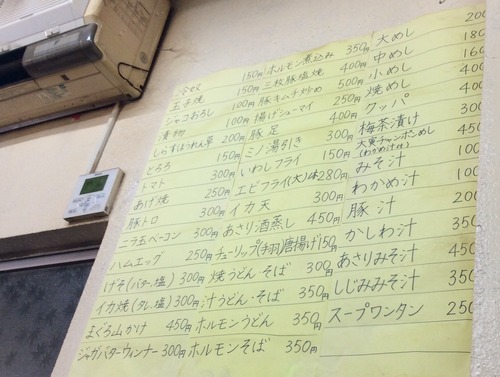 冷奴 150円
玉子焼 150円
ジャコおろし 100円
漬物 100円
しらすほうれん草 200円
とろろ 150円
トマト 300円
あげ焼 250円
豚トロ 300円
ニラ玉ベーコン 300円
ハムエッグ 250円
げそ(バター,塩) 300円
イカ焼(タレ,塩) 300円
まぐろ山かけ 450円
ジャガバターウィンナー 300円
ホルモン煮込み 350円
三枚豚塩焼 400円
豚キムチ炒め 500円
揚げシューマイ 250円
豚足 400円
ミノ湯引き 300円
いわしフライ 150円
エビフライ(大)1本280円
イカ天 300円
あさり酒蒸し 450円
チューリップ(手羽)唐揚げ150円
焼うどん・そば 300円
汁うどん・そば 350円
ホルモンうどん 350円
ホルモンそば 350円
大めし 200
中めし 180
小めし 160
焼めし 400
クッパ 400
梅茶漬け 300
大東チャンポンめし 450
(わかめ汁付)
みそ汁 100
わかめ汁 100
豚汁 300
かしわ汁 350
あさりみそ汁 450
しじみみそ汁 350
スープワンタン 250